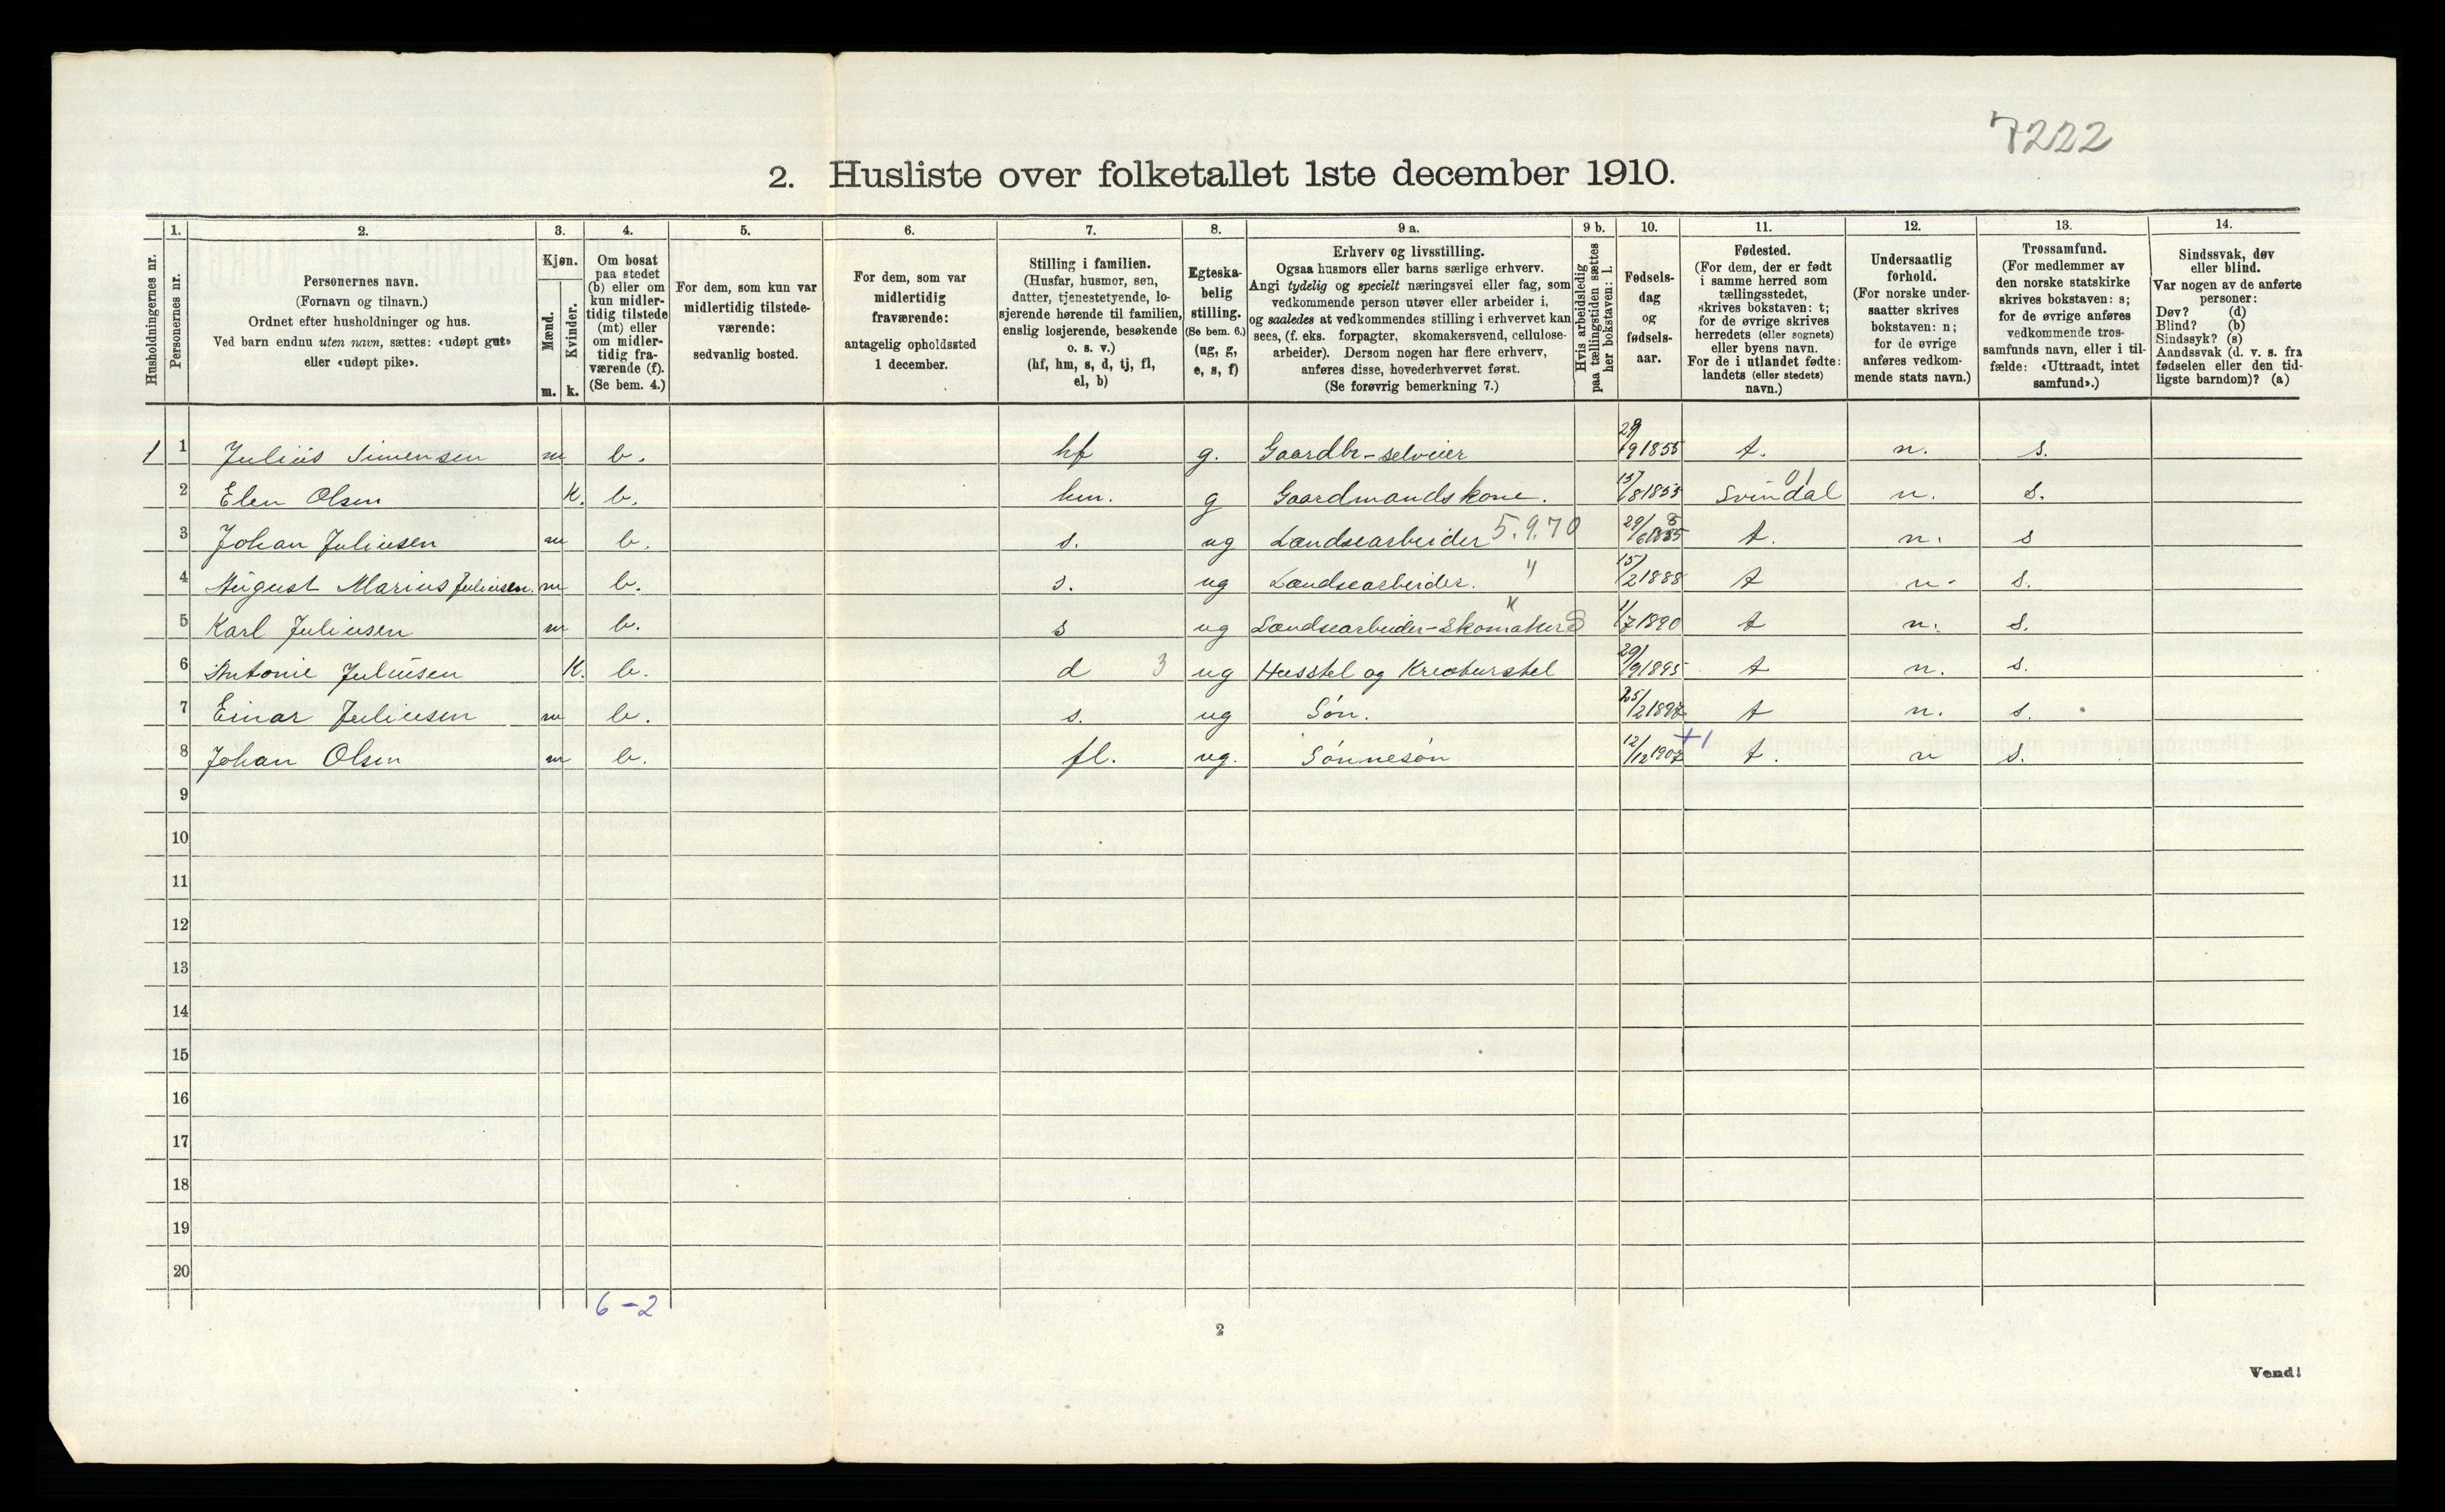 7222
2. Husliste over folketallet 1ste december 1910.
1. 2. 3. 4. 5. 6. 7. 8. 9 a. 9 b. 10. 11. 12. 13. 14.
Husholdningernes nr.
Personernes nr.
Personernes navn.
(Fornavn og tilnavn.)
Ordnet efter husholdninger og hus.
Ved barn endnu uten navn, sættes: «udøpt gut»
eller «udøpt pike».
Kjøn.
Mænd.
Kvinder.
m. k.
Om bosat
paa stedet
(b) eller om
kun midler-
tidig tilstede
(mt) eller
om midler-
tidig fra-
værende (f).
(Se bem. 4.)
For dem, som kun var
midlertidig tilstede-
værende:
sedvanlig bosted.
For dem, som var
midlertidig
fraværende:
antagelig opholdssted
1 december.
Stilling i familien.
(Husfar, husmor, søn,
datter, tjenestetyende, lo-
sjerende hørende til familien,
enslig losjerende, besøkende
o. s. v.)
(hf, hm, s, d, tj, fl,
el, b)
Egteska-
belig
stilling.
(Se bem. 6.)
(ug, g,
e, s, f)
Erhverv og livsstilling.
Ogsaa husmors eller barns særlige erhverv.
Angi tydelig og specielt næringsvei eller fag, som
vedkommende person utøver eller arbeider i,
og saaledes at vedkommendes stilling i erhvervet kan
sees, (f. eks. forpagter, skomakersvend, cellulose-
arbeider). Dersom nogen har flere erhverv,
anføres disse, hovederhvervet først.
(Se forøvrig bemerkning 7.)
Hvis arbeidsledig
paa tællingstiden sættes
her bokstaven: l.
Fødsels-
dag
og
fødsels-
aar.
Fødested.
(For dem, der er født
i samme herred som
tællingsstedet,
skrives bokstaven: t;
for de øvrige skrives
herredets (eller sognets)
eller byens navn.
For de i utlandet fødte:
landets (eller stedets)
navn.)
Undersaatlig
forhold.
(For norske under-
saatter skrives
bokstaven: n;
for de øvrige
anføres vedkom-
mende stats navn.)
Trossamfund.
(For medlemmer av
den norske statskirke
skrives bokstaven: s;
for de øvrige anføres
vedkommende tros-
samfunds navn, eller i til-
fælde: «Uttraadt, intet
samfund».)
Sindssvak, døv
eller blind.
Var nogen av de anførte
personer:
Døv? (d)
Blind? (b)
Sindssyk? (s)
Aandssvak (d. v. s. fra
fødselen eller den tid-
ligste barndom)? (a)
1 1 Julius Simensen m b. hf g. Gaardbr-selveier 29/9 1855 t. n. s.
2 Elen Olsen K. b. hm. g Gaardmandskone. 15/8 1853 Svindal 01 n. s.
3 Johan Juliusen m b. s. ug Landsearbeider 5.9.70 29/6 1885 t. n. s
4 August Marius Juliusen. m b. s. ug Landsearbeider. " 15/2 1888 t n. s.
5 Karl Juliusen m b. s ug Landsearbeider-Skomaker " 1/7 1890 t n. s.
6 Antonie Juliusen K. b. d 3 ug Husstel og Kreaturstel 29/9 1895 t n. s.
7 Einar Juliusen m b. s. ug Søn. 25/2 1897 t n. s.
8 Johan Olsen m b. fl. ug. Sønnesøn 12/12 1907 +1 t. n s.
9
10
11
12
13
14
15
16
17
18
19
20
6-2
2
Vend!